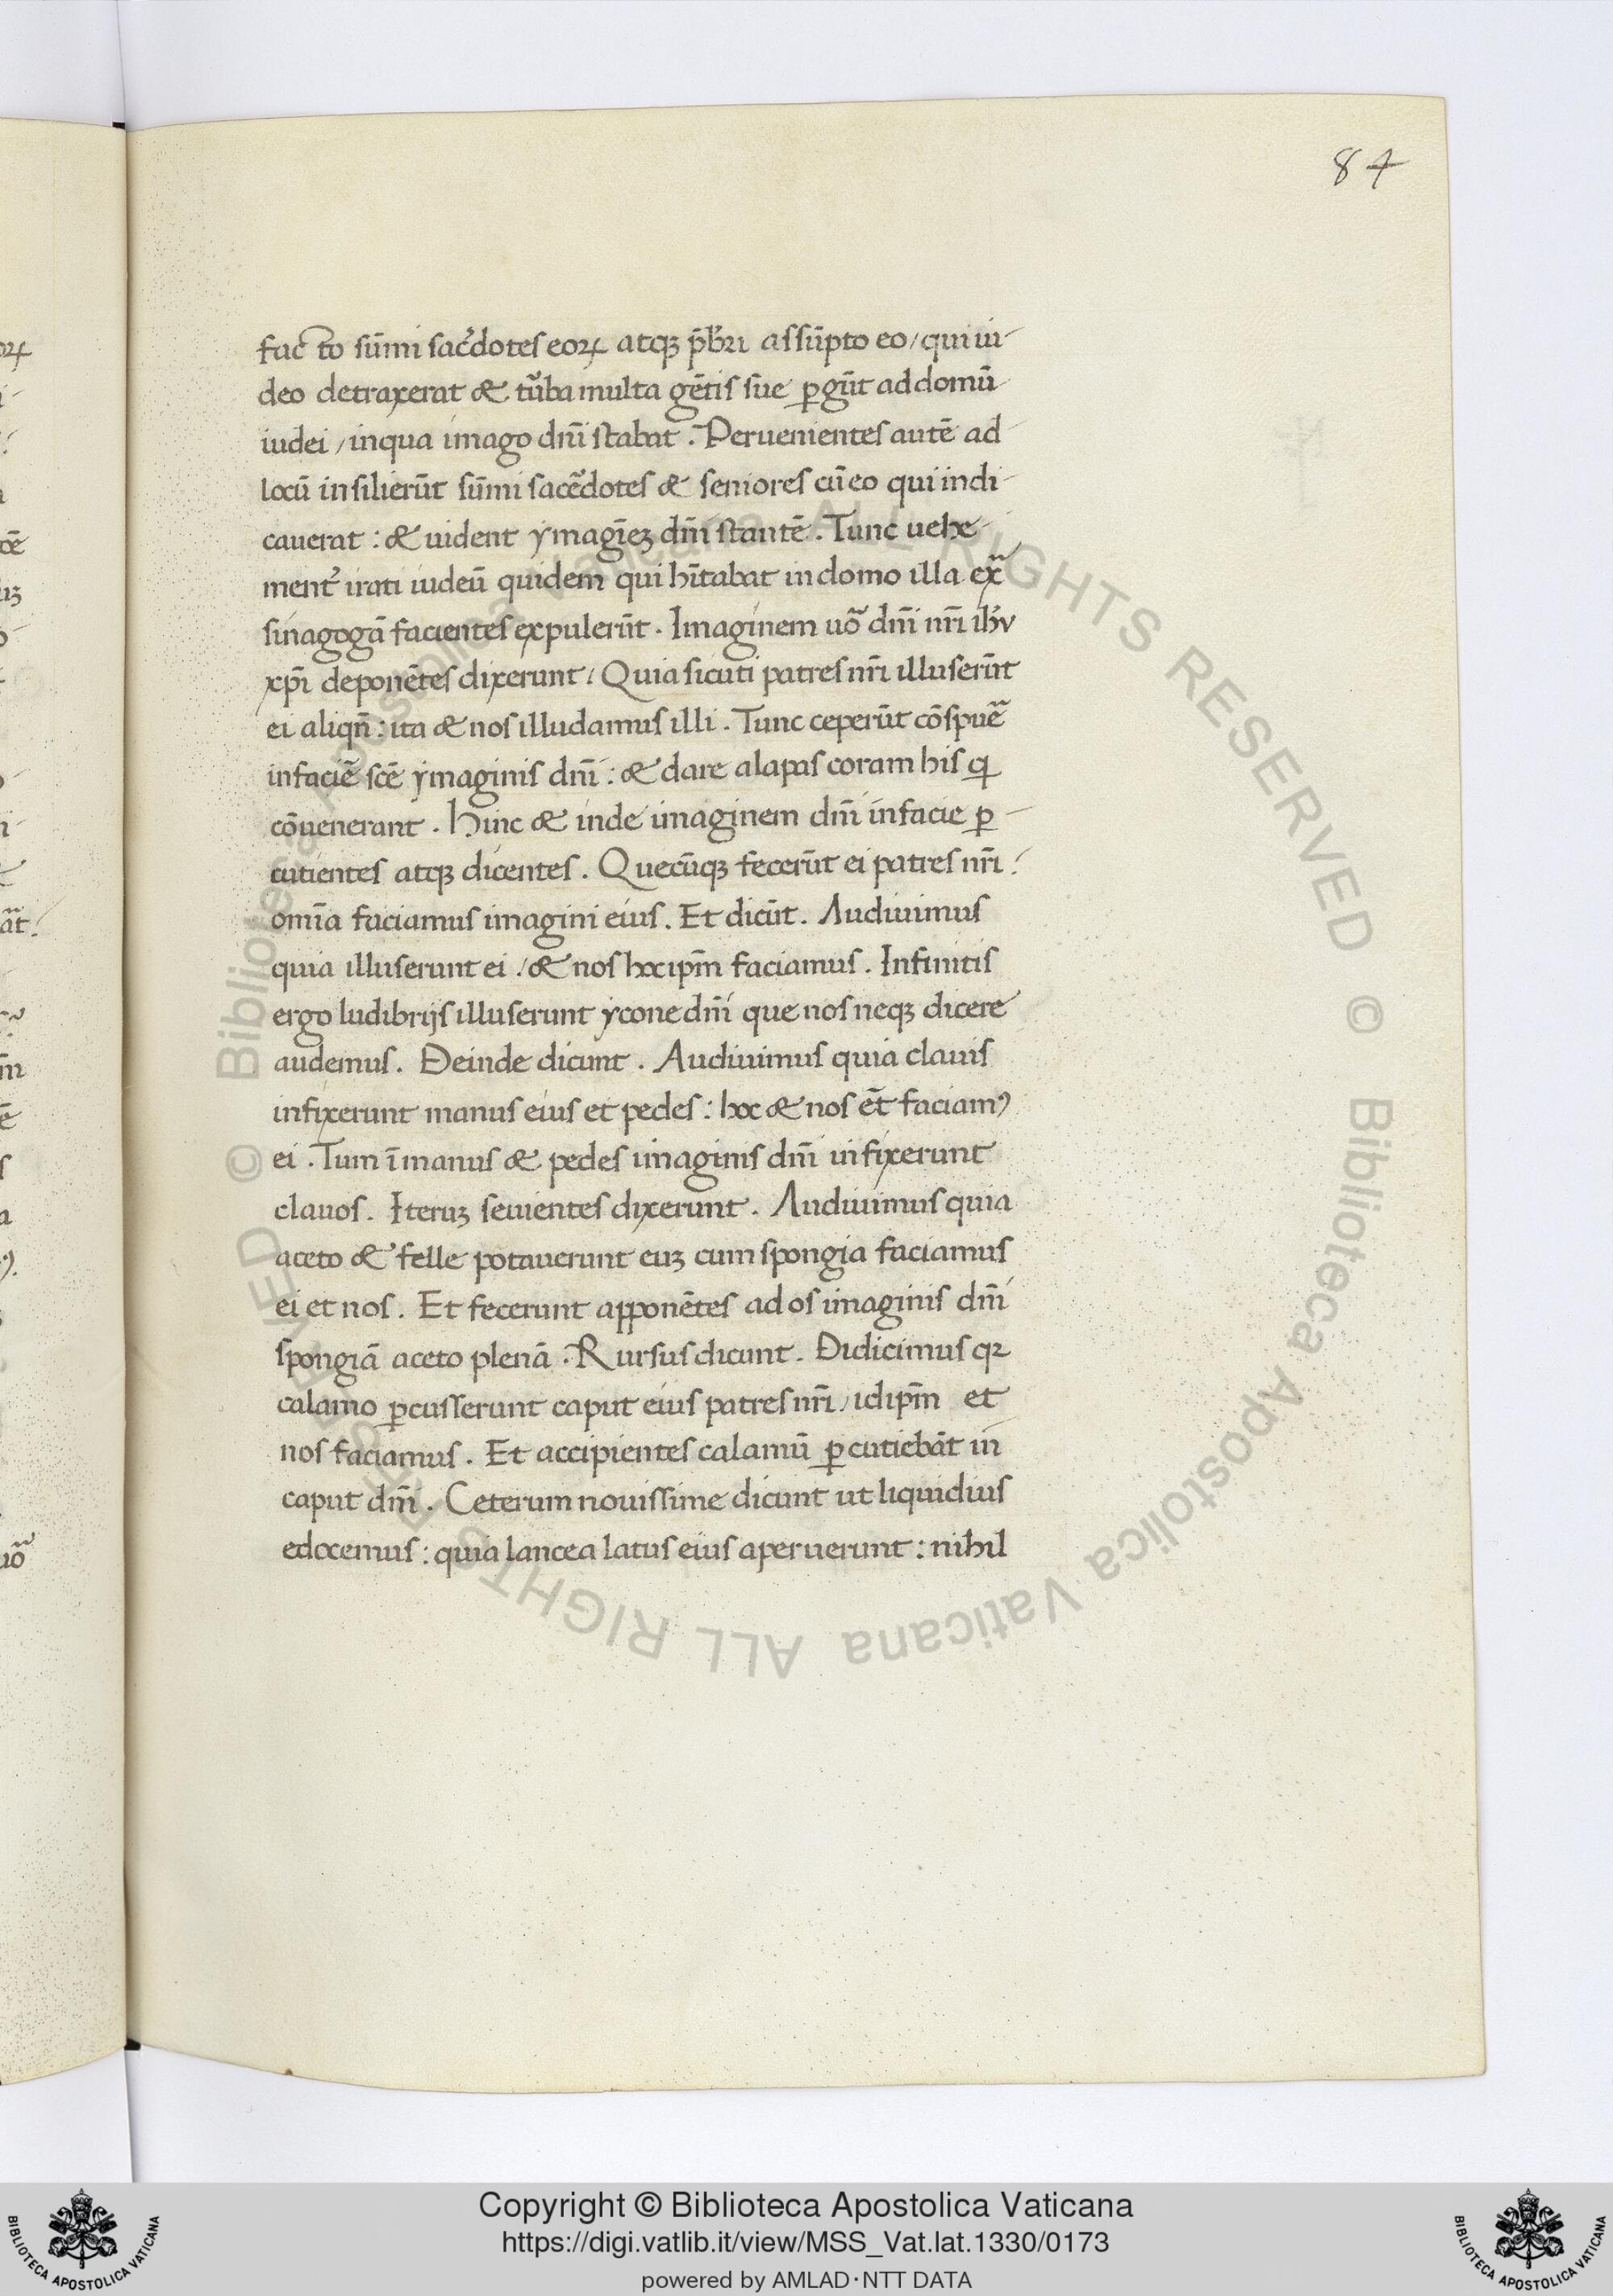 84
fac to sūmi sac̄dotes eoꝝ atqꝫ p̄b̄ri assūpto eo / qui iu-
deo detraxerat & tūba multa gētis sue ꝑgūt ad domū
iudei / inqua imago dn̄i stabat . Peruenientes autē ad
locū insilierūt sūmi sacēdotes & seniores cū eo qui indi-
cauerat : & uident ymagīeꝫ dn̄i stantē . Tunc uehe-
ment᷑ irati iudeū quidem qui hītabat in domo illa ex̄
sinagogā facientes expulerūt . Imaginem uō dn̄i nr̄i ih̄v
xp̄i deponētes dixerunt / Quia sicuti patres nr̄i illuserūt
ei aliqn̄ : ita & nos illudamus illi . Tunc ceperūt cōspuē
infaciē scē ymaginis dn̄i : & dare alapas coram his qi
cōuenerant . Hinc & inde imaginem dn̄i infacie ꝑ-
cutientes atqꝫ dicentes . Quecūqꝫ fecerūt ei patres nr̄i :
omīa faciamus imagini eius . Et dicūt . Audiuimus
quia illuserunt ei : & nos hoc ipm̄ faciamus . Infinitis
ergo ludibrijs illuserunt ycone dn̄i que nos neqꝫ dicere
audemus . Deinde dicunt . Audiuimus quia clauis
infixerunt manus eius et pedes : hoc & nos ēt faciamꝰ
ei . Tum ī manus & pedes imaginis dn̄i infixerunt
clauos . Iteruꝫ seuientes dixerunt . Audiuimus quia
aceto & felle potauerunt euꝫ cum spongia faciamus
ei et nos . Et fecerunt apponētes ad os imaginis dn̄i
spongiā aceto plenā . Rursus dicunt . Didicimus qꝛ
calamo ꝑcusserunt caput eius patres nr̄i / idipm̄ et
nos faciamus . Et accipientes calamū ꝑcutiebāt in
caput dn̄i . Ceterum nouissime dicunt ut liquidius
edocemus : quia lancea latus eius aperuerunt : nihil
© Biblioteca Apostolica Vaticana ALL RIGHTS RESERVED © Biblioteca Apostolica Vaticana ALL RIGHTS RESERVED
BIBLIOTECA APOSTOLICA VATICANA
Copyright © Biblioteca Apostolica Vaticana
https://digi.vatlib.it/view/MSS_Vat.lat.1330/0173
powered by AMLAD・NTT DATA
BIBLIOTECA APOSTOLICA VATICANA